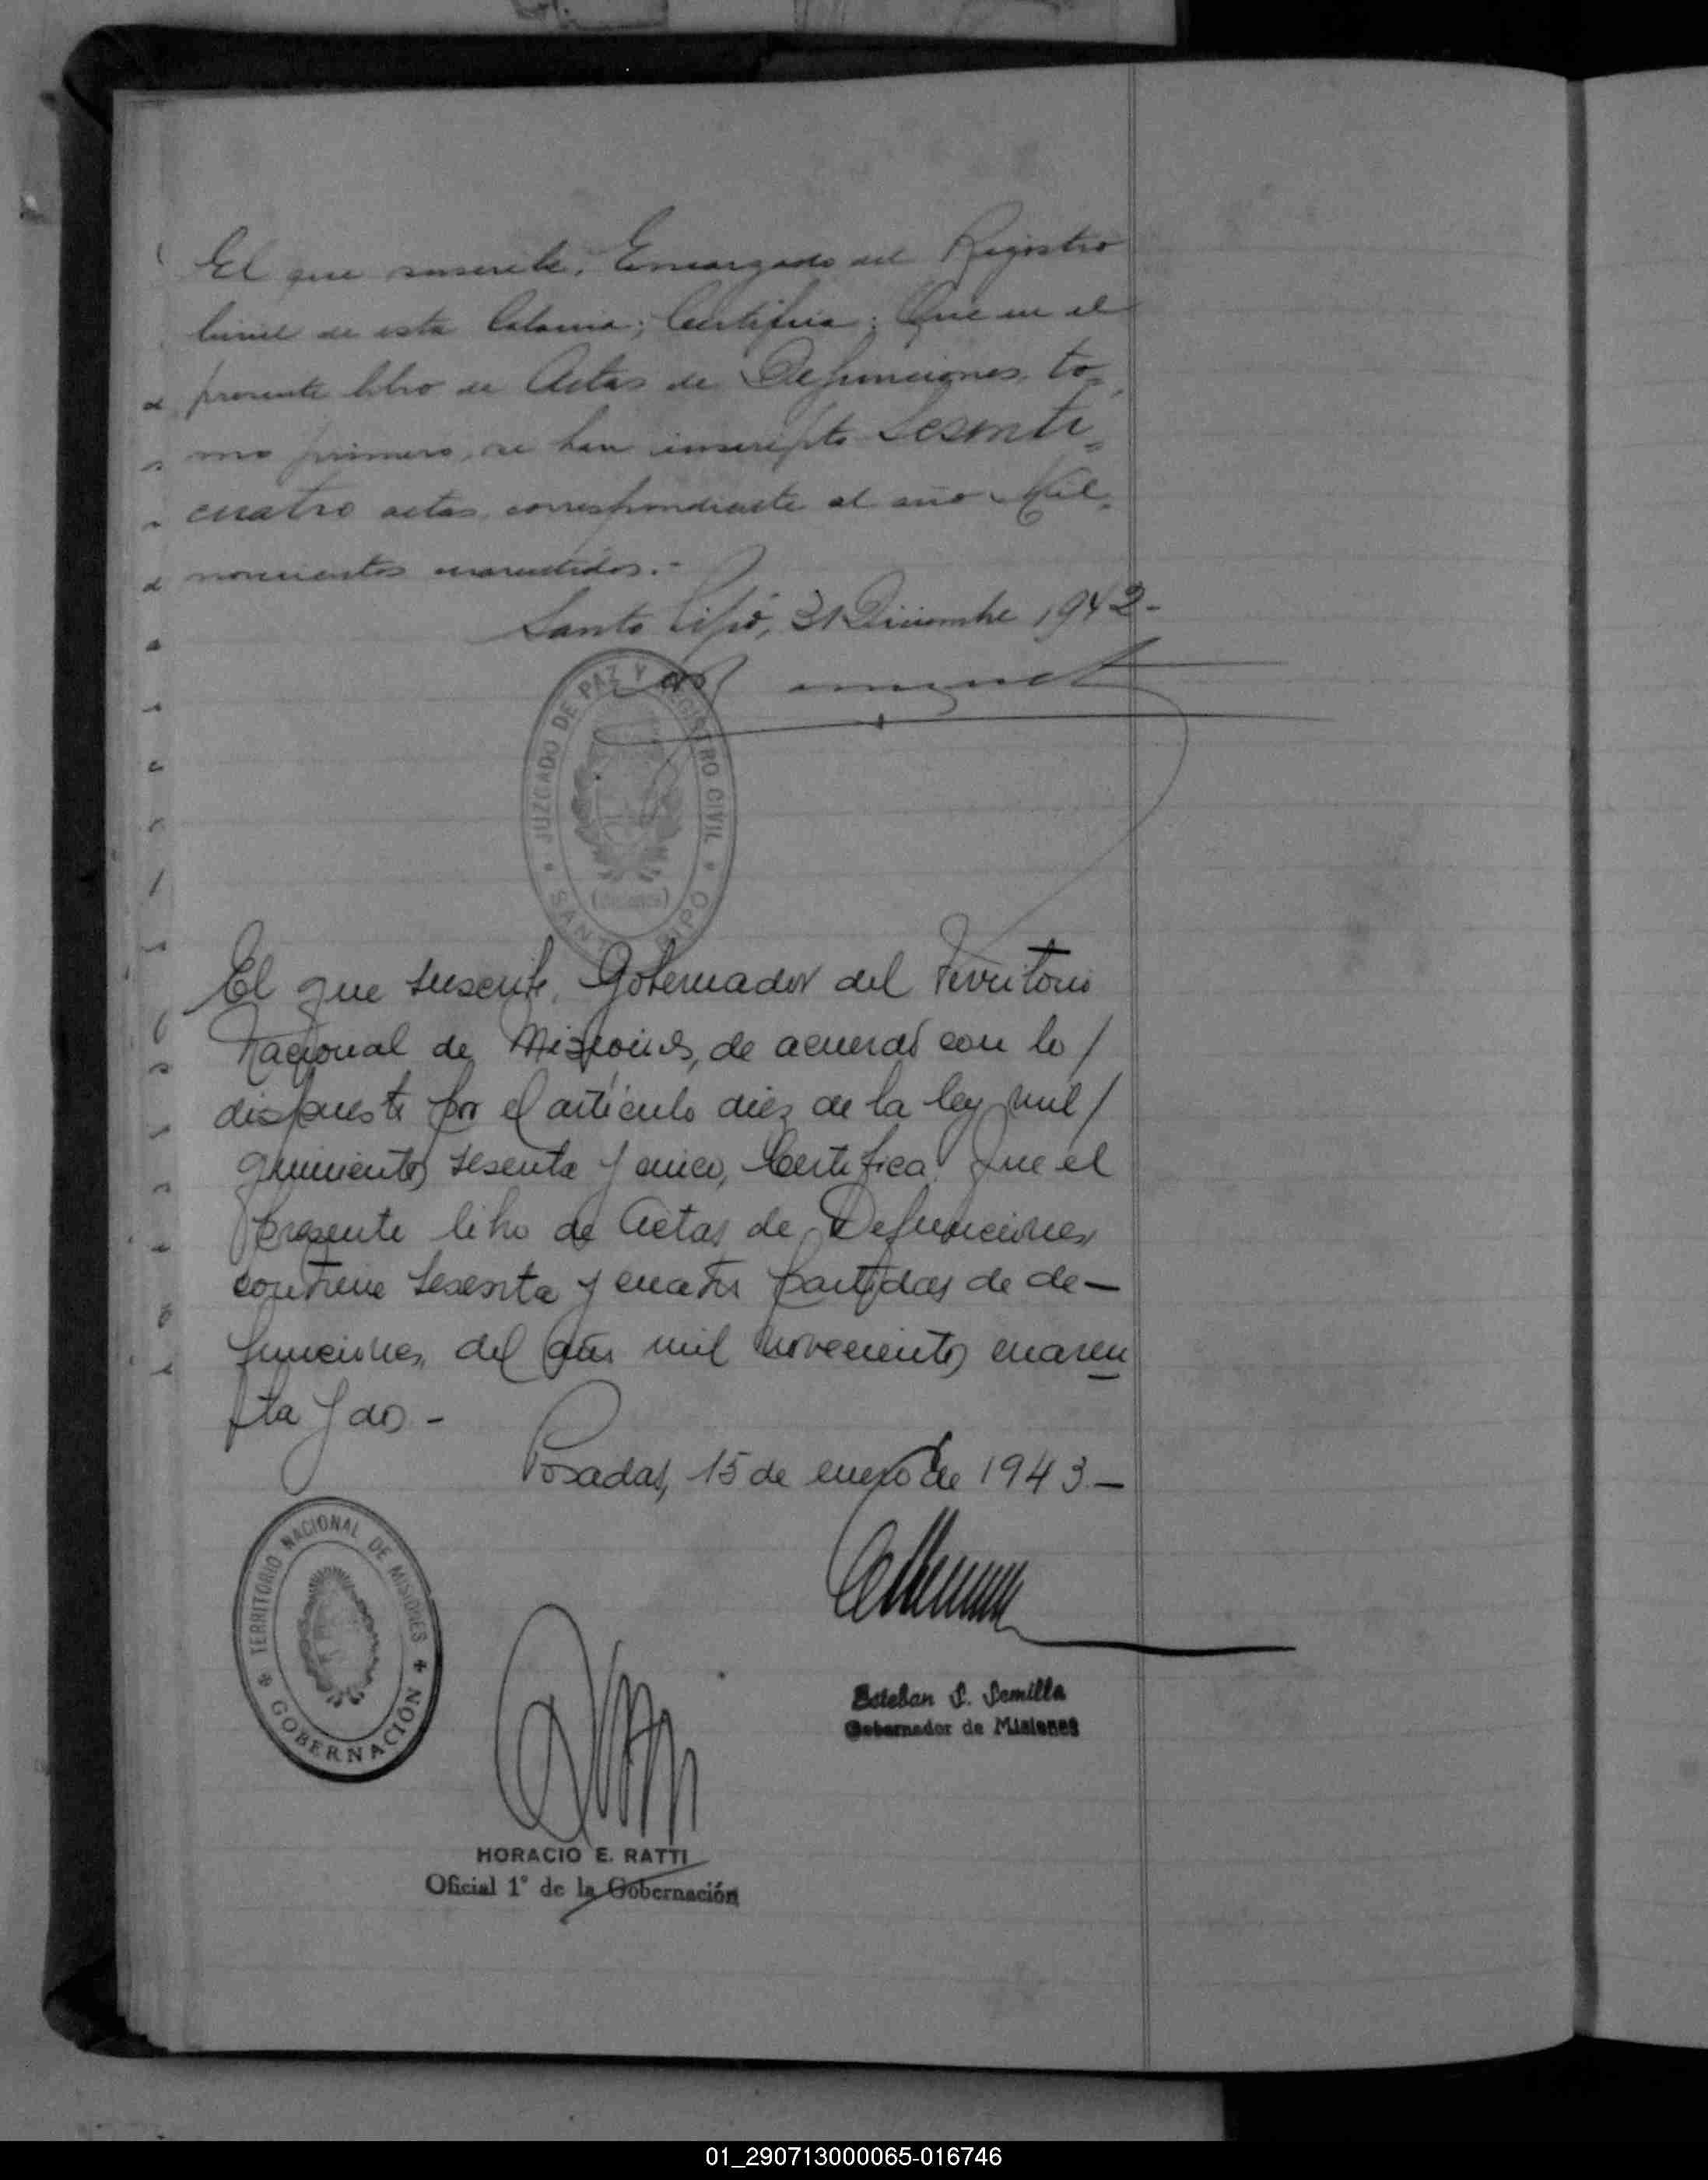 El que suscribe, Encargado del Registro
Civil de esta Colonia; Certifica: Que en el
presente libro de Actas de Defunciones, to=
mo primero, se han inscripto Sesenti=
cuatro actas, correspondiente al año Mil=
novecientos cuarentidos.-
Santo Pipó, 31 Diciembre 1942-
JUZGADO DE PAZ Y REGISTRO CIVIL
SANTO PIPO
(Misiones)
El que suscribe, Gobernador del Territorio
Nacional de Misiones, de acuerdo con lo /
dispuesto por el artículo diez de la ley mil /
quinientos sesenta y cinco, Certifica: que el
presente libro de Actas de Defunciones
contiene sesenta y cuatro partidas de de—
funciones, del año mil novecientos cuaren
ta y dos -
Posadas, 15 de enero de 1943.—
TERRITORIO NACIONAL DE MISIONES
GOBERNACIÓN
Esteban S. Semilla
Gobernador de Misiones
HORACIO E. RATTI
Oficial 1° de la Gobernación
01_290713000065-016746